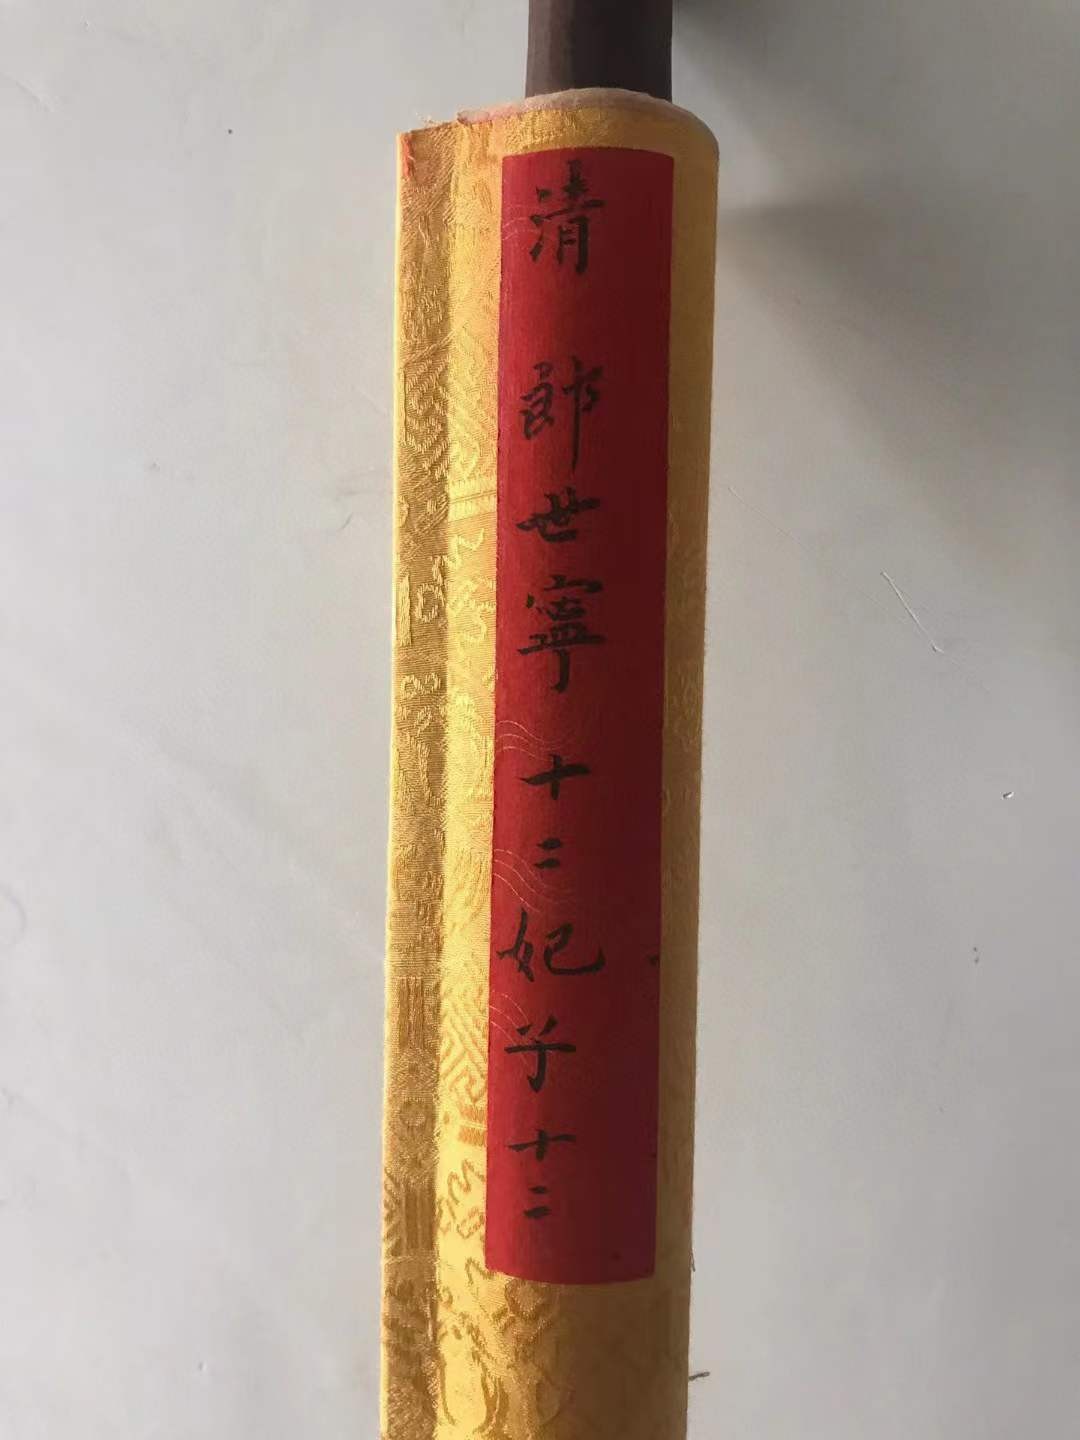 清 郎世寧十二妃子十二